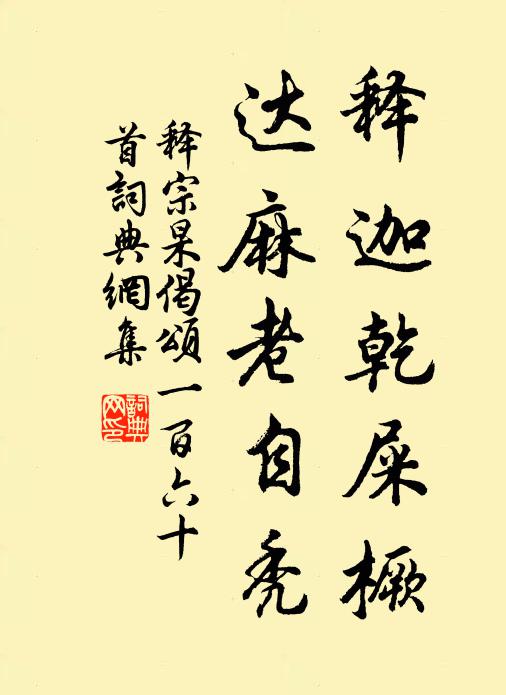 释迦乾屎橛
达麻老自秃
释宗杲偈頌一百六十
首詞典網集
詞典
网印